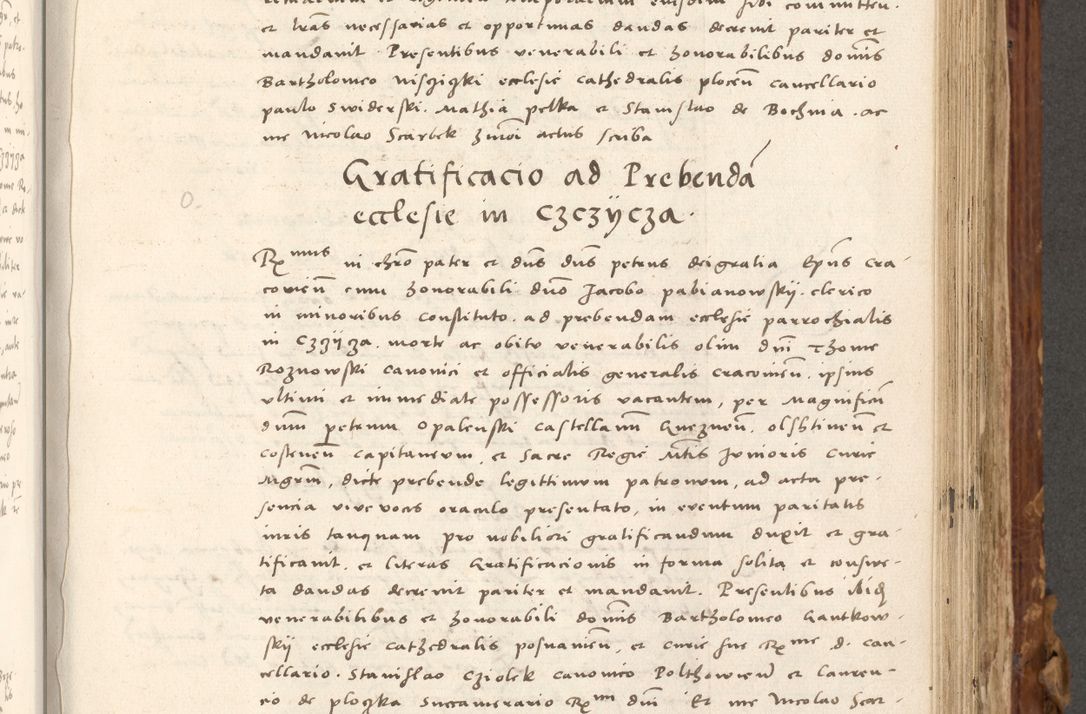 et l̄ras necessarias et opportunas dandas decrevit pariter et
mandavit. Presentibus venerabili et honorabilibus dom̄is
Bartholomeo ecclesie cathedralis plocen̄ cancellario
paulo Swiderski. Mathia pelka et Stanislao de Bochnia. ac
me Nicolao Scarbek actus scriba
Gratificacio ad Prebendā
ecclesie in Czczÿcza.
Rx̄mus in chrō pater et dn̄s dn̄s petrus dei gratia Ep̄us Cra-
covien̄ cum honorabili dn̄o Jacobo pabianowskÿ. clerico
in minoribus constituto. ad prebendam ecclesie parrochialis
in morte ac obitu venerabilis olim dn̄i Thome
Roznowski canonici et officialis generalis cracovien̄. ipsius
ultimi et immediate possessoris vacantem, per Magnificū
dn̄um petrum Opalenski castellanū Gneznen̄. olshtinen̄ et
Costenen̄ capitaneum, et Sacre Regie Mt̄is Junioris curie
Mgrm̄, dicte prebende legittimum patronum, ad acta pre-
sencia vive vocis oraculo presentato, in eventum paritatis
iuris tanquam pro nobiliori gratificandum duxit et gra-
tificavit, et literas Gratificacionis in forma solita et consue-
ta dandas decrevit pariter et mandavit. Presentibus ibid
venerabilibus et honorabili dom̄is Bartholomeo Gantkow-
skÿ ecclesie cathedralis posnanien̄, et curie sue Rx̄me d. can-
cellario. Stanislao Cziolek canonico Polthovien̄ et Lauren-
cio de plogka succamerario Rx̄mi dn̄i Et me Nicolao Scar-